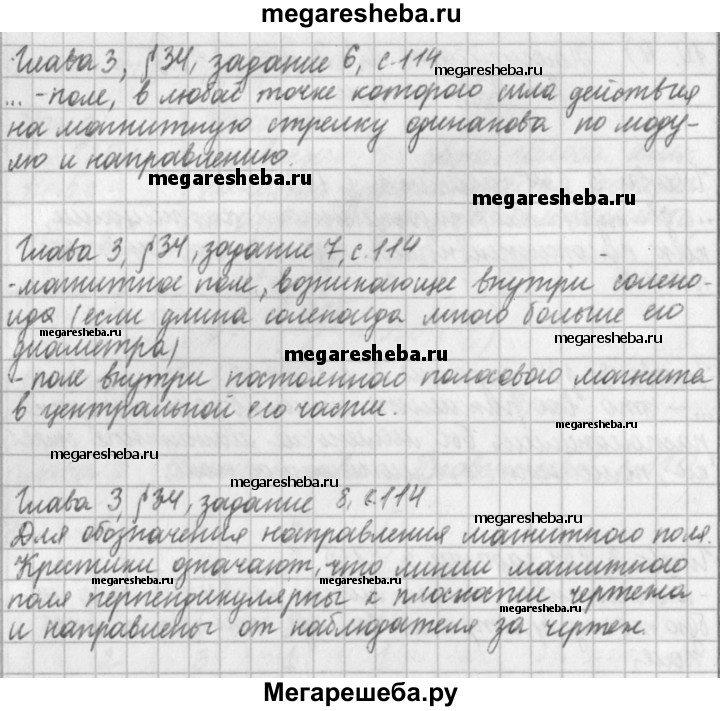 megaresheba.ru
Глава 3, § 34, задание 6, с. 114
megaresheba.ru
... - поле, в любой точке которого сила действия
на магнитную стрелку одинакова по моду-
лю и направлению.
megaresheba.ru
megaresheba.ru
Глава 3, § 34, задание 7, с. 114
- магнитное поле, возникающее внутри солено-
ида (если длина соленоида много больше его
megaresheba.ru
megaresheba.ru
диаметра)
megaresheba.ru
- поле внутри постоянного полосового магнита
в центральной его части.
megaresheba.ru
Глава 3, § 34, задание 8, с. 114
megaresheba.ru
Для обозначения направления магнитного поля.
Крестики означают, что линии магнитного
megaresheba.ru
megaresheba.ru
megaresheba.ru
поля перпендикулярны к плоскости чертежа
megaresheba.ru
и направлены от наблюдателя за чертеж.
Мегарешеба.ру